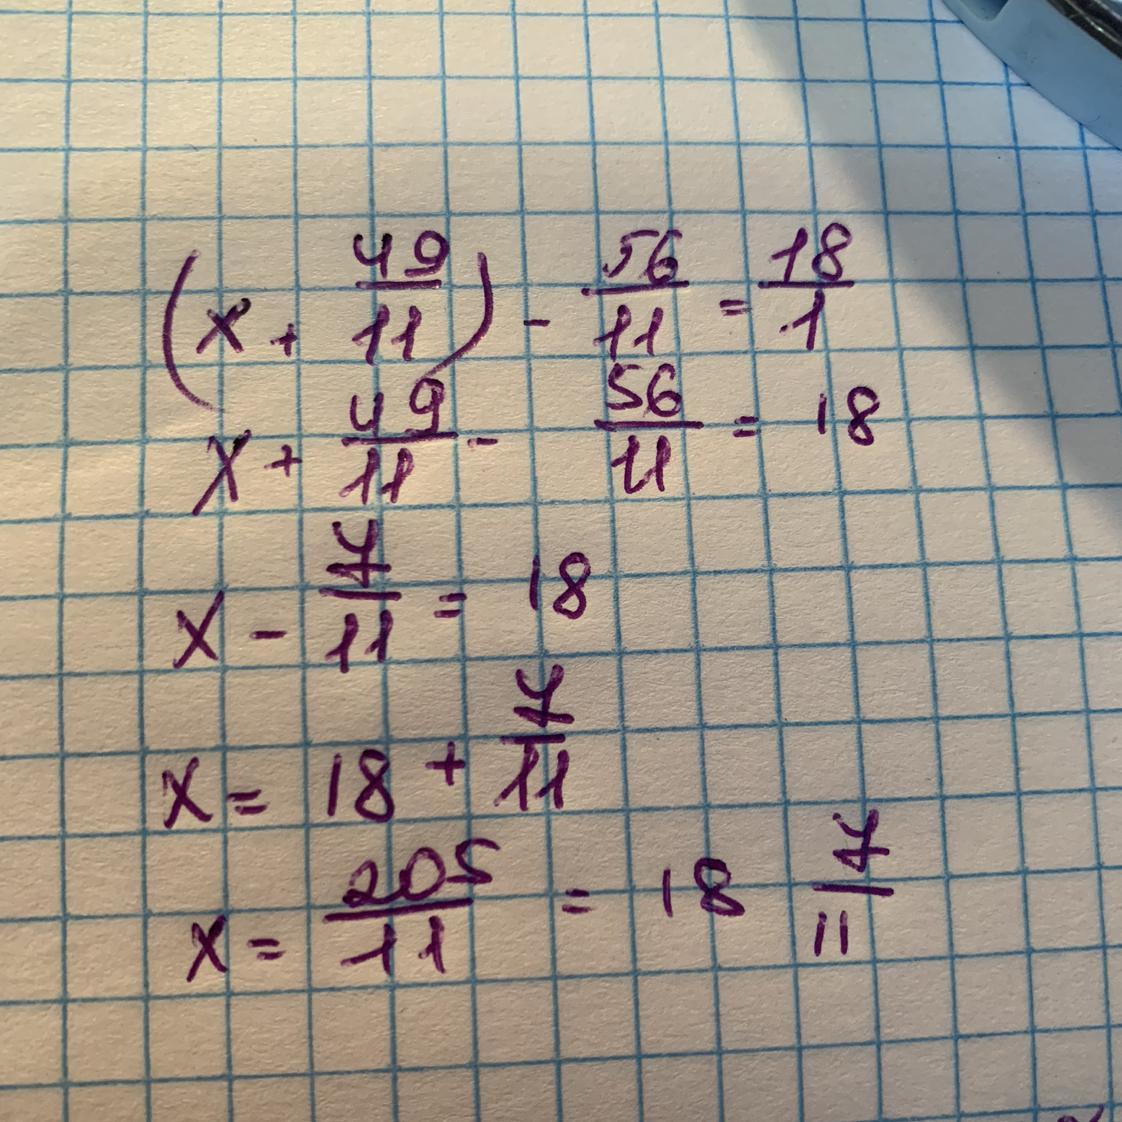 (x + 49/11) - 56/11 = 18/1
x + 49/11 - 56/11 = 18
x - 7/11 = 18
x = 18 + 7/11
x = 205/11 = 18 7/11